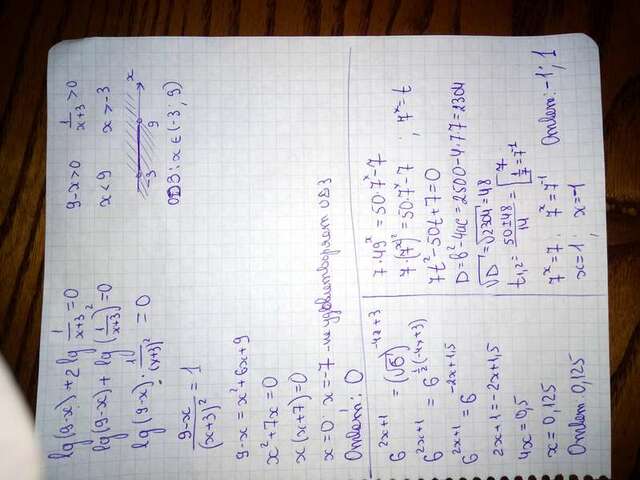 lg(9-x) + 2lg 1/(x+3) = 0
lg(9-x) + lg(1/(x+3))² = 0
lg(9-x) · 1/(x+3)² = 0
(9-x)/(x+3)² = 1
9-x = x²+6x+9
x²+7x = 0
x(x+7) = 0
x=0 x=-7 -не удовлетворяет ОДЗ
Ответ: 0
9-x>0 1/(x+3) >0
x<9 x>-3
-3 9 x
ОДЗ: x∈(-3; 9)
6^(2x+1) = (√6)^(-4x+3)
6^(2x+1) = 6^(½(-4x+3))
6^(2x+1) = 6^(-2x+1,5)
2x+1=-2x+1,5
4x=0,5
x=0,125
Ответ: 0,125
7·49^x = 50·7^x-7
7·(7^x)² = 50·7^x-7 ; 7^x=t
7t²-50t+7=0
D=b²-4ac=2500-4·7·7=2304
√D=√2304=48
t1,2 = (50±48)/14 = [7; 1/7=7^-1
7^x=7 · 7^x=7^-1
x=1 · x=-1 Ответ: -1; 1